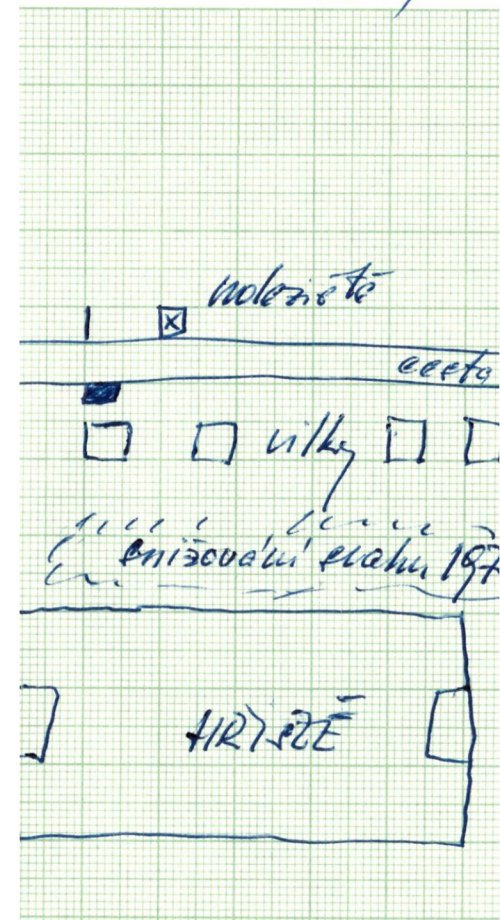 naleziště
cesta
vilky
snižování svahu 197
HŘIŠTĚ